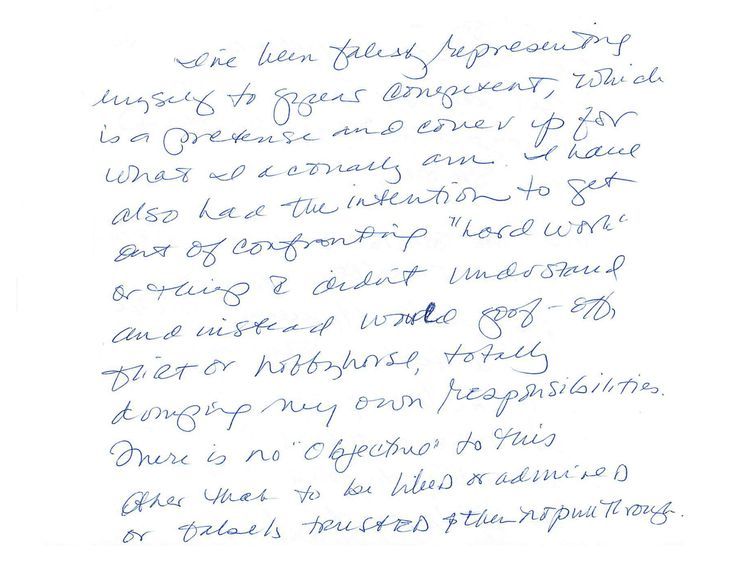 I've been falsely representing
myself to appear competent, which
is a pretense and cover up for
what I actually am. I have
also had the intention to get
out of confronting "hard work"
or things I didn't understand
and instead would goof-off,
flirt or hobbyhorse, totally
dumping my own responsibilities.
There is no "Objective" to this
other than to be liked or admired
or falsely trusted & then not pull through.